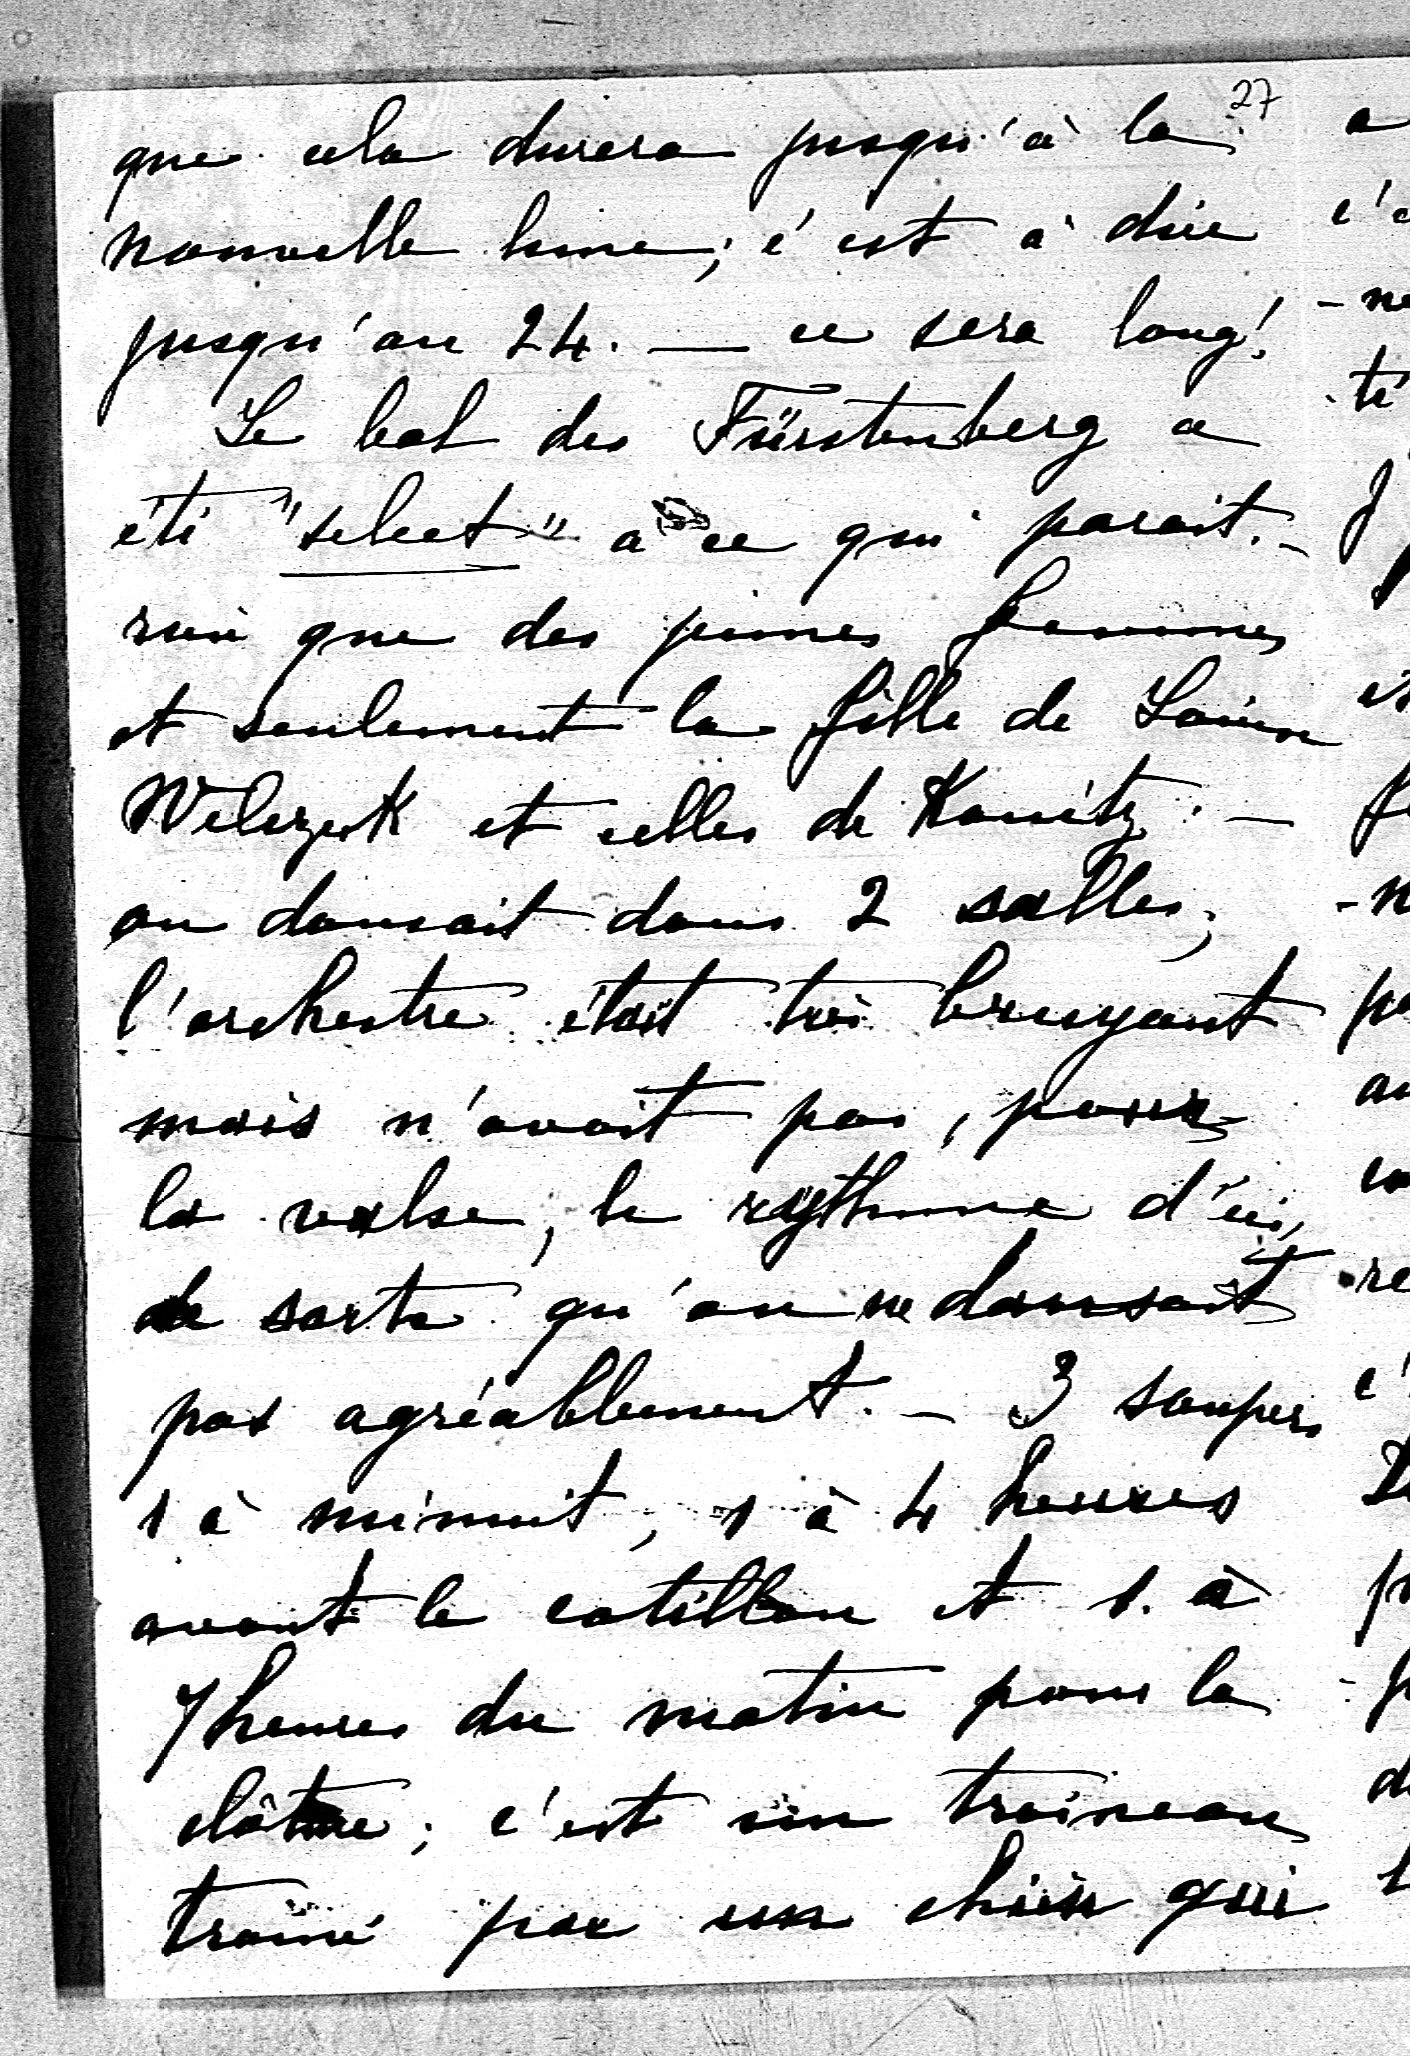 27
que cela durera jusqu'à la
nouvelle lune; c'est à dire
jusqu'au 24. — ce sera long!
Le bal des Fürstenberg a
été "select" à ce qui parait. -
rien que des jeunes femmes
et seulement la fille de
Welczek et celles de Kanitz. —
on dansait dans 2 salles;
l'orchestre était très bruyant
mais n'avait pas, pour
la valse, le rythme d'ici,
de sorte qu'on ne dansait
pas agréablement. - 3 soupers
1 à minuit, 1 à 4 heures
avant le cotillon et 1. à
7 heures du matin pour la
clôture; c'est un traineau
trainé par un chien qui